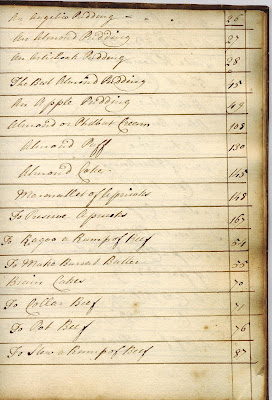 An Angelica Pudding 26
An Almond Pudding 27
An Artichock Pudding 28
The Best Almond Pudding 45
An Apple Pudding 49
Almond or Philbut Cream 108
Almond Puff 130
Almond Cake 145
Marmallet of Apricoks 145
To Preserve Apricoks 163
To Ragoo a Rump of Beef 54
To Make Burnt Butter 55
Brain Cakes 70
To Collar Beef 71
To Pot Beef 76
To Stew a Rump of Beef 87